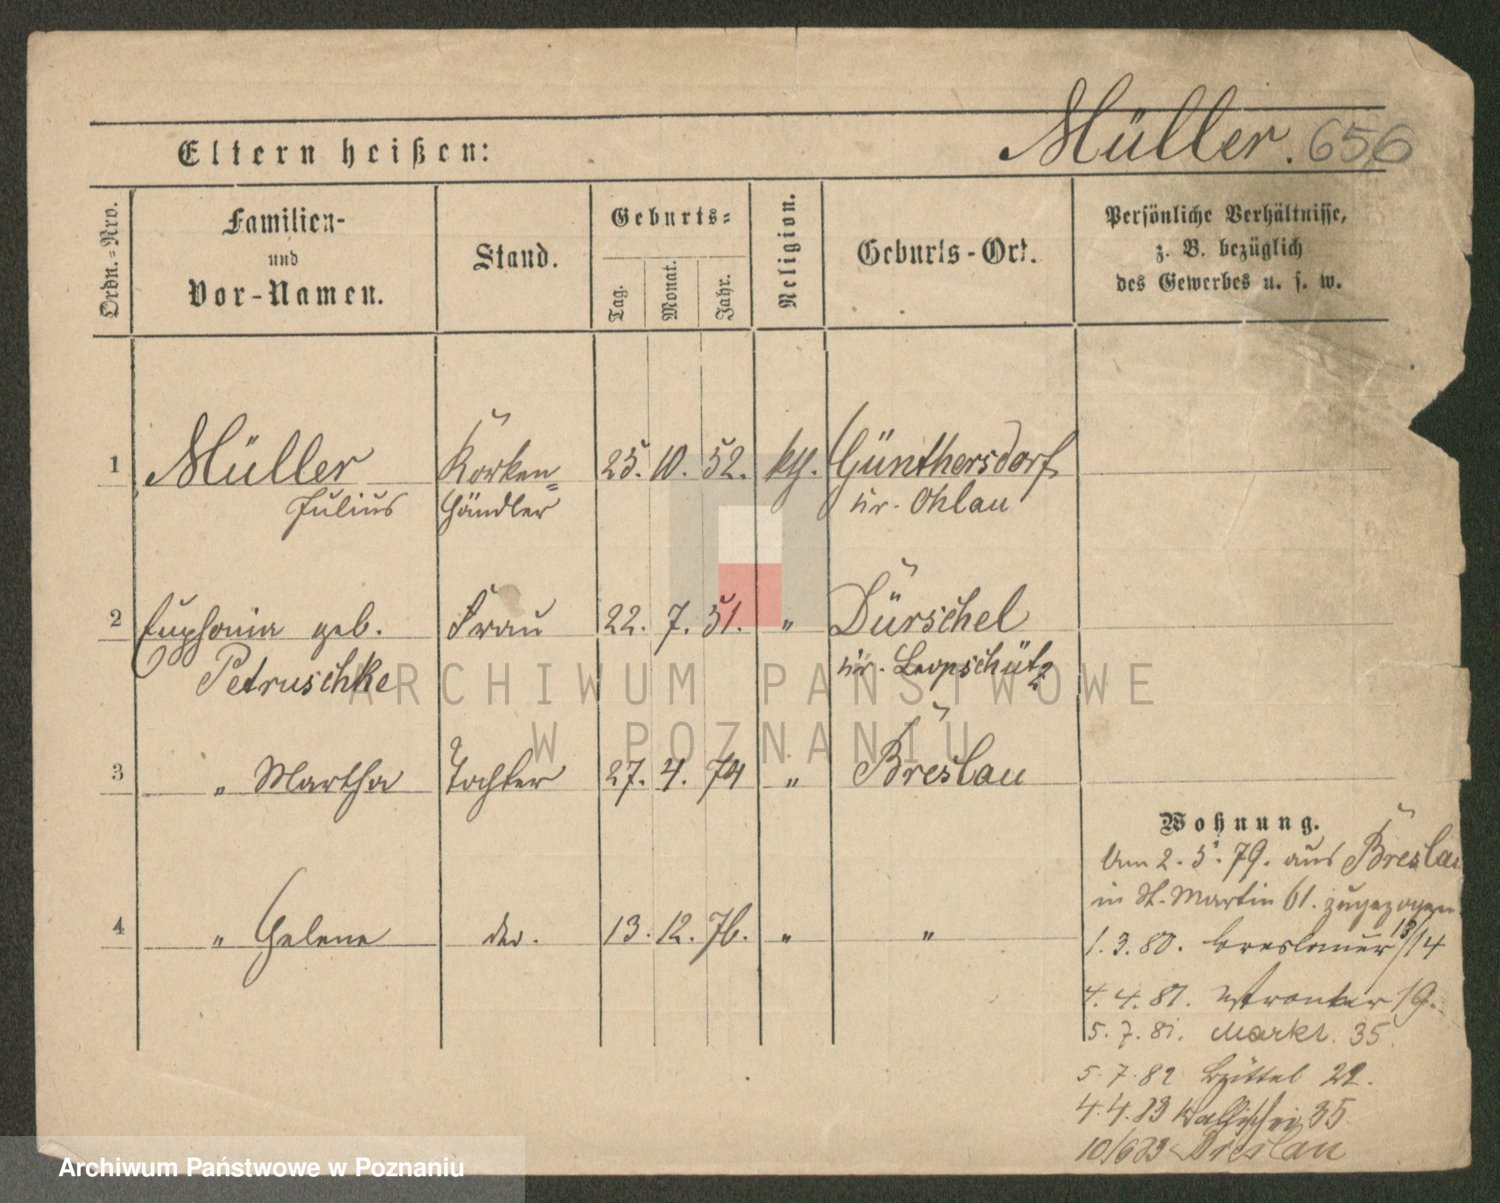 Eltern heißen:
Müller. 656
Ordn.-Nro.
Familien-
und
Vor-Namen.
Stand.
Geburts-
Tag.
Monat.
Jahr.
Religion.
Geburts-Ort.
Persönliche Verhältnisse,
z. B. bezüglich
des Gewerbes u. s. w.
1 Müller Korken- 25. 10. 52. kth. Günthersdorf
Julius händler Kr. Ohlau
2 Euphonia geb. Frau 22. 7. 51. " Dürschel
Petruschke Kr. Leopschütz
3 " Martha Tochter 27. 4. 74 " Breslau
4 " Helene do. 13. 12. 76. " "
Wohnung.
Am 2. 5. 79. aus Breslau
in St. Martin 61. zugezogen
1. 3. 80. Breslauer 13/14
4. 4. 81. Wronker 19.
5. 7. 81. Markt. 35.
5. 7. 82 Büttel 22.
4. 4. 83 Wallischei 35
10/6 83 Breslau
ARCHIWUM PAŃSTWOWE
W POZNANIU
Archiwum Państwowe w Poznaniu